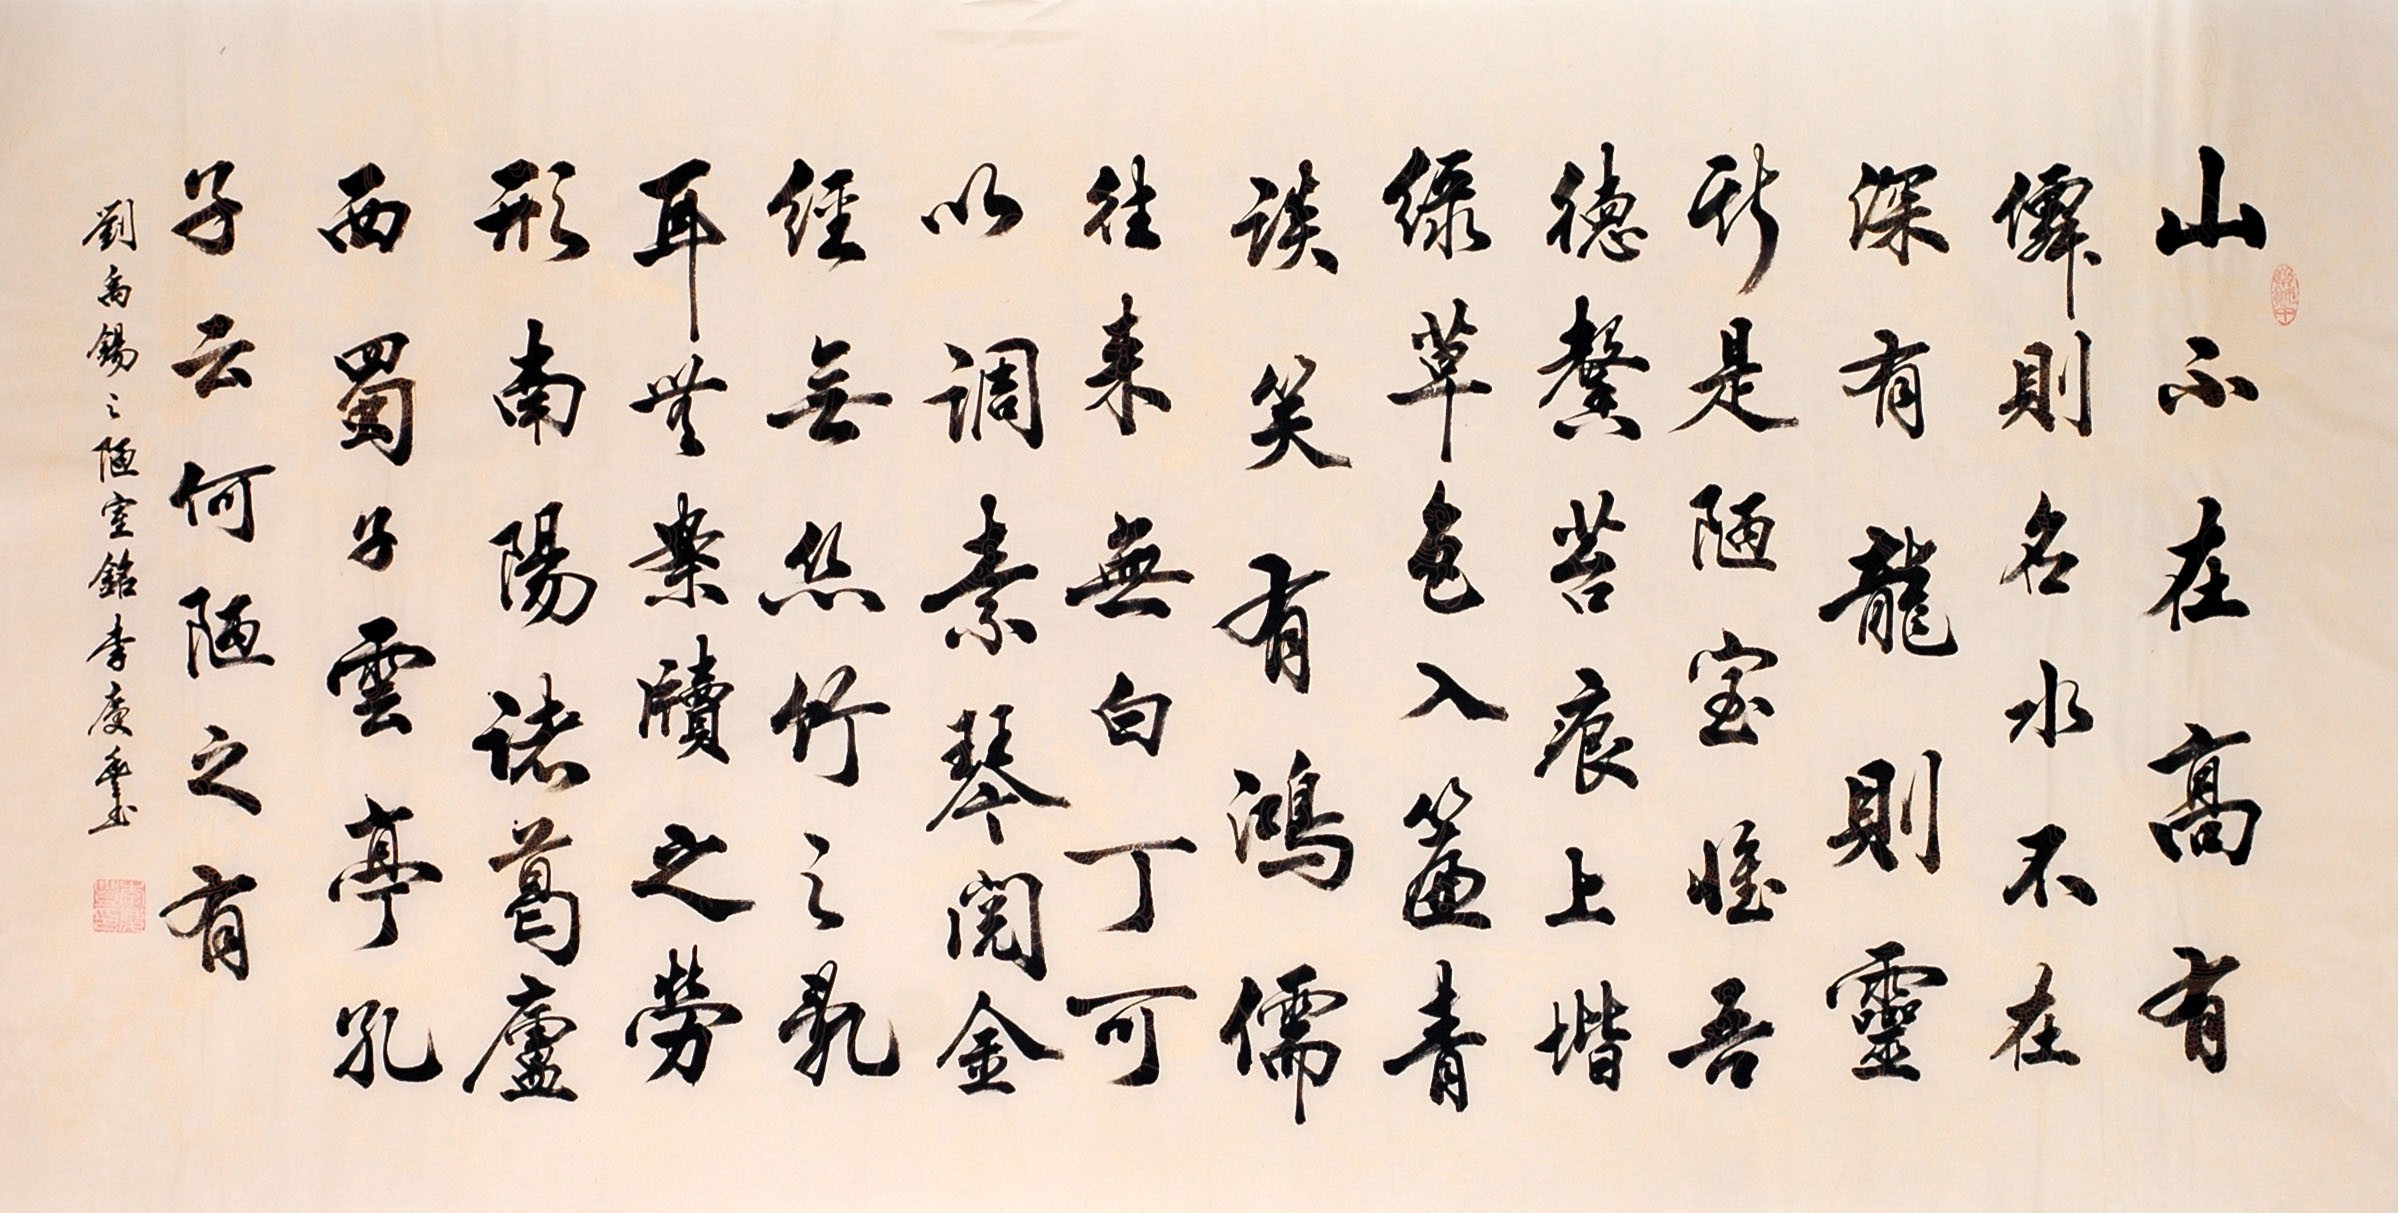 山不在高有
僊則名水不在
深有龍則靈
斯是陋室惟吾
德馨苔痕上堦
綠草色入簾青
談笑有鴻儒
往来無白丁可
以調素琴閱金
經無丝竹之亂
耳無案牘之勞
形南陽諸葛廬
西蜀子雲亭孔
子云何陋之有
劉禹錫之陋室銘李慶